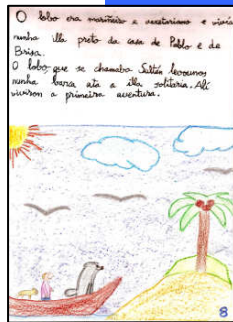 O lobo era mariñeiro e vexetariano e vivía
nunha illa preto da casa de Pablo e de
Brisa.
O lobo que se chamaba Sultán levounos
nunha barca ata a illa solitaria. Alí
viviron a primeira aventura.
8